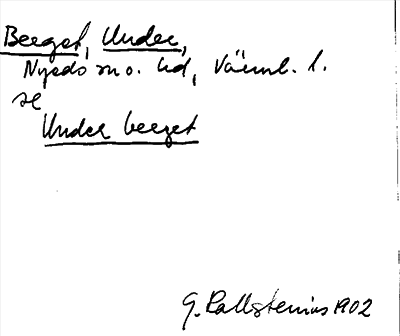 Berget, Under,
Nyeds sn o. hd, Värml. l.
se
Under berget
G. Kallstenius 1902